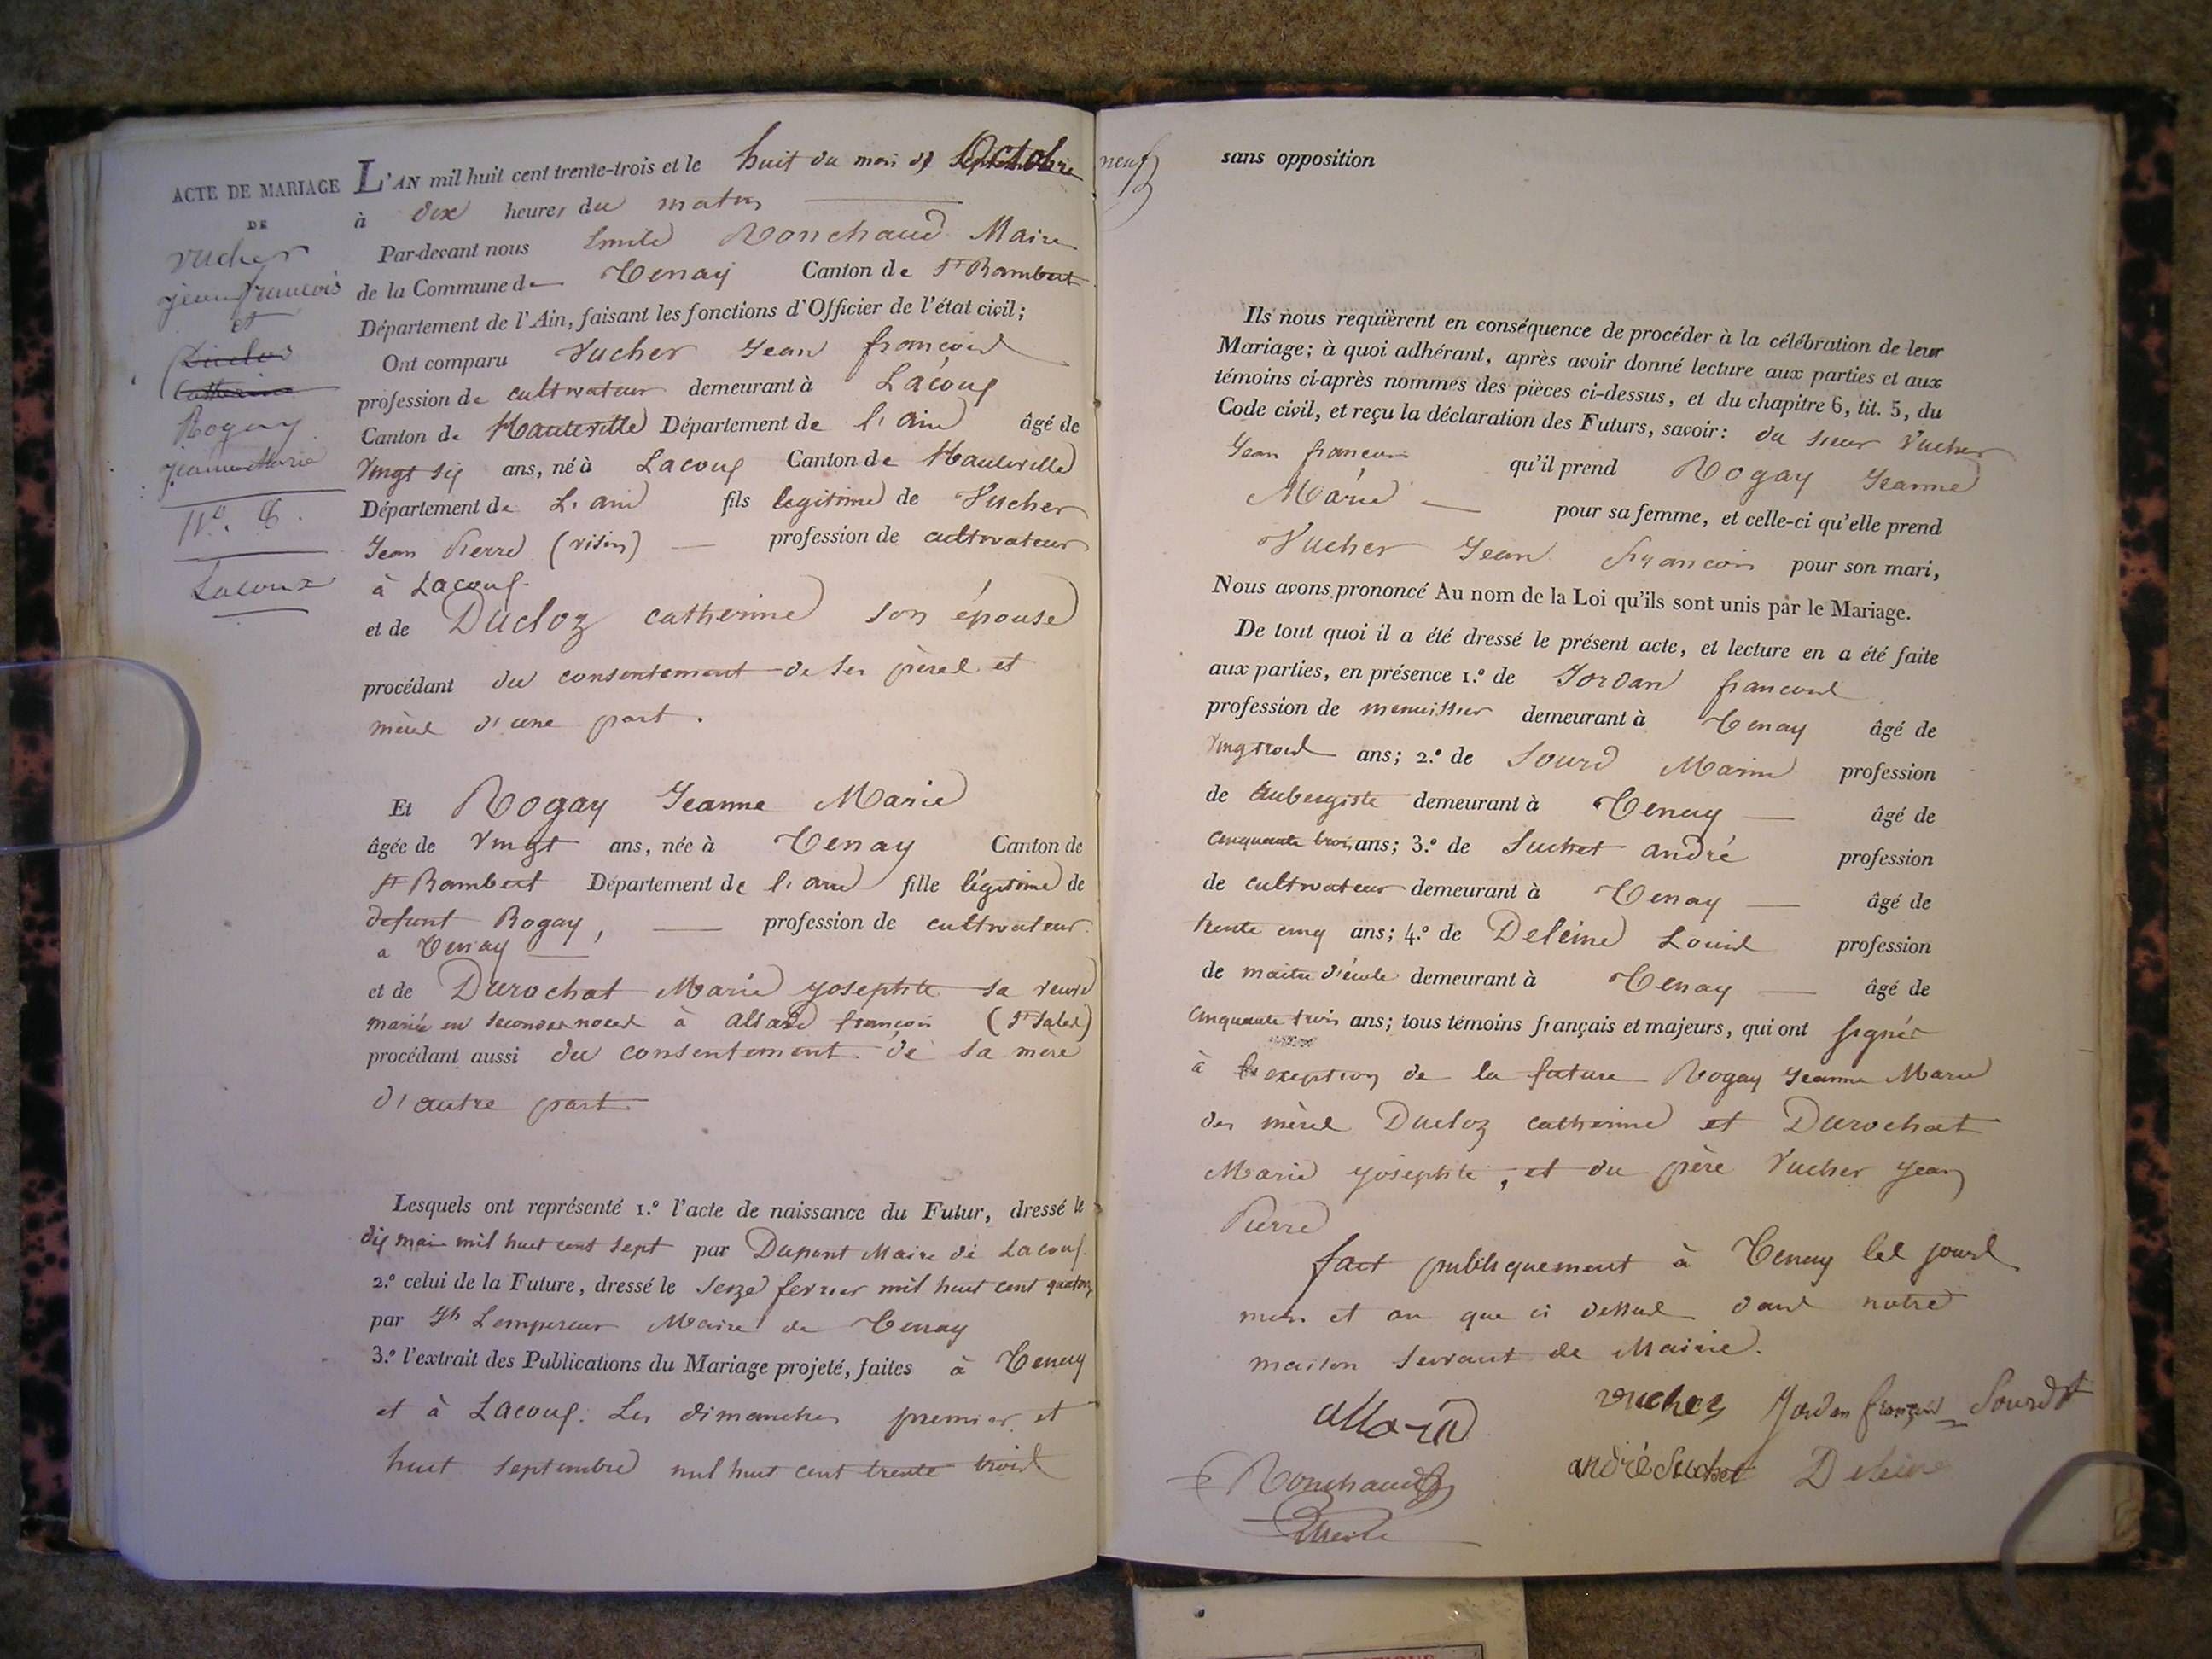 ACTE DE MARIAGE
DE
Vucher
jean francois
et
Duclos
Catherine
Rogay
jeanne Marie
Lacoux
L'AN mil huit cent trente-trois et le huit du mois de Octobre
à dix heures du matin
Par-devant nous Emile Ronchaud Maire
de la Commune de Tenay Canton de St Rambert
Département de l'Ain, faisant les fonctions d'Officier de l'état civil;
Ont comparu Vucher Jean francois
profession de cultivateur demeurant à Lacoux
Canton de Hauteville Département de l'ain âgé de
Vingt six ans, né à Lacoux Canton de Hauteville
Département de L'ain fils legitime de Vucher
Jean Pierre (visin) profession de cultivateur
à Lacoux
et de Ducloz catherine son épouse
procédant du consentement de ses pères et
mères d'une part.
Et Rogay Jeanne Marie
âgée de Vingt ans, née à Tenay Canton de
St Rambert Département de l'ain fille légitime de
defunt Rogay, profession de cultivateur
a Tenay
et de Durochat Marie josephte sa veuve
mariée en secondes noces à allard françois (St Sales)
procédant aussi du consentement de sa mere
d'autre part
Lesquels ont représenté 1.º l'acte de naissance du Futur, dressé le
dix mai mil huit cent sept par Dupont Maire de Lacoux
2.º celui de la Future, dressé le seize fevrier mil huit cent quatorze
par Jh Lempereur Maire de Tenay
3.º l'extrait des Publications du Mariage projeté, faites à Tenay
et à Lacoux. Les dimanches premier et
huit septembre mil huit cent trente trois
neuf
sans opposition
Ils nous requièrent en conséquence de procéder à la célébration de leur
Mariage; à quoi adhérant, après avoir donné lecture aux parties et aux
témoins ci-après nommés des pièces ci-dessus, et du chapitre 6, tit. 5, du
Code civil, et reçu la déclaration des Futurs, savoir: du sieur Vucher
Jean francois qu'il prend Rogay Jeanne
Marie pour sa femme, et celle-ci qu'elle prend
Vucher Jean francois pour son mari,
Nous avons prononcé Au nom de la Loi qu'ils sont unis par le Mariage.
De tout quoi il a été dressé le présent acte, et lecture en a été faite
aux parties, en présence 1.º de Jordan francois
profession de menuisier demeurant à Tenay âgé de
Vingtrois ans; 2.º de Sourd Marin profession
de aubergiste demeurant à Tenay âgé de
cinquante trois ans; 3.º de Suchet andré profession
de cultivateur demeurant à Tenay âgé de
trente cinq ans; 4.º de Deleine Louis profession
de maitre d'école demeurant à Tenay âgé de
cinquante trois ans; tous témoins français et majeurs, qui ont signés
à exeption de la future Rogay Jeanne Marie
des mères Ducloz catherine et Durochat
Marie josephte, et du père Vucher jean
Pierre
fait publiquement à Tenay les jours
mois et an que ci dessus dans notre
maison servant de Mairie.
allard
vucher
Jordan françois
Sourd
Ronchaud
andré Suchet
Deleine